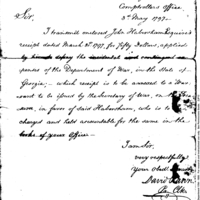 Comptrollers Office.
3d May 1797.
Sir,
I transmit enclosed John Habersham Esquires
receipt dated March 1797. for fifty Dollars, applied
by him to defray the incidental and contingent ex-
pences of the Department of War, in the State of
Georgia, which receipt is to be annexed to a war-
rant to be issued by the Secretary of War, on
in favor of said Habersham, who is to be
charged and held accountable for the same in the
books of your Office.
I am Sir,
very respectfully
Your Obed
David